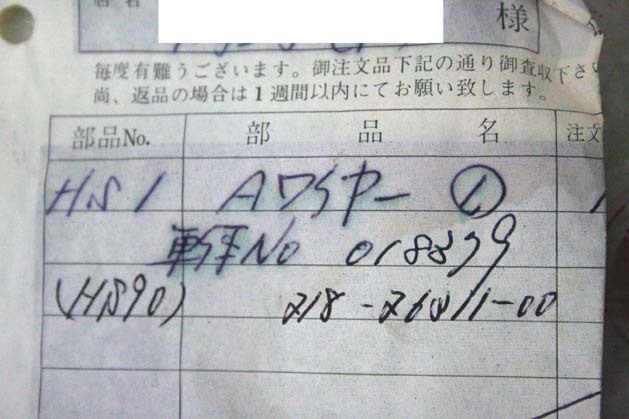 様
毎度有難うございます。御注文品下記の通り御査収下さい
尚、返品の場合は1週間以内にてお願い致します。
部品No. 部品名 注文
HS1 Aワイヤー ① 1
No 018879
(HS90) 218-26311-00